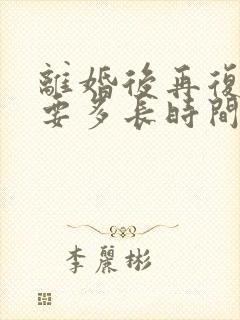 離婚後再復
要多長時間
李麗彬